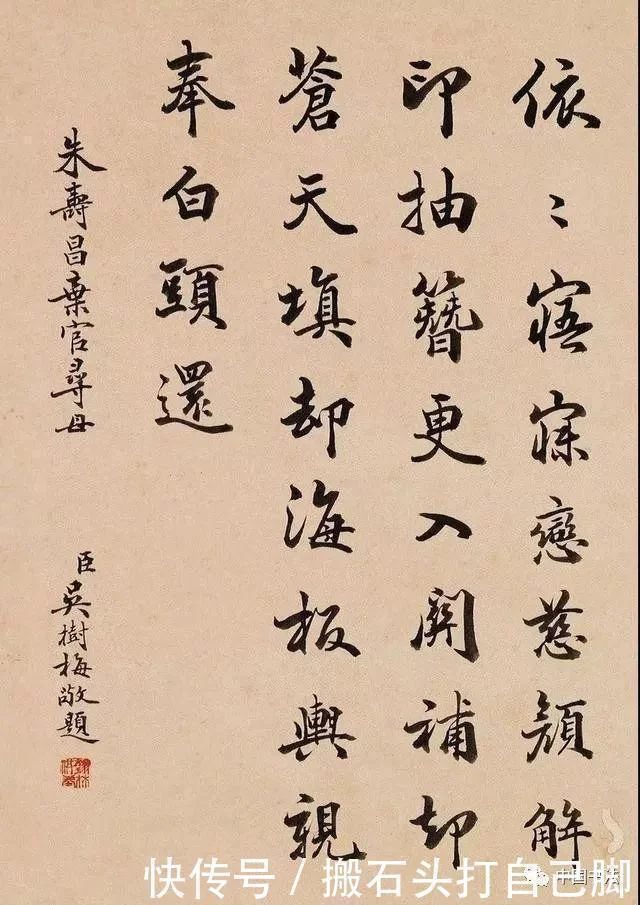 依〻寤寐戀慈顏解
印抽簪更入關補却
蒼天填却海板輿親
奉白頭還
朱壽昌棄官尋母
臣吳樹梅敬題
快传号 / 搬石头打自己脚
中国